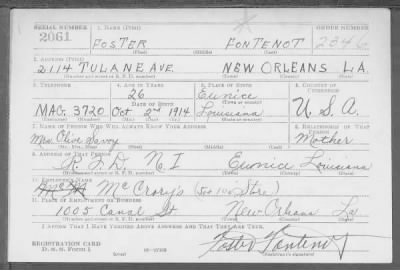 SERIAL NUMBER 1. NAME (Print) ORDER NUMBER
2061 FOSTER FONTENOT 2346
(First) (Middle) (Last)
2. ADDRESS (Print)
2114 TULANE AVE. NEW ORLEANS LA.
(Number and street or R. F. D. number) (Town) (County) (State)
3. TELEPHONE 4. AGE IN YEARS 5. PLACE OF BIRTH 6. COUNTRY OF CITIZENSHIP
26 Eunice
DATE OF BIRTH (Town or county)
MAG. 3720 Oct 2 1914 Louisiana U.S.A.
(Exchange) (Number) (Mo.) (Day) (Yr.) (State or country)
7. NAME OF PERSON WHO WILL ALWAYS KNOW YOUR ADDRESS 8. RELATIONSHIP OF THAT PERSON
Mrs. Olive Savoy Mother
(Mr., Mrs., Miss) (First) (Middle) (Last)
9. ADDRESS OF THAT PERSON
R.F.D. N. I Eunice Louisiana
(Number and street or R. F. D. number) (Town) (County) (State)
10. EMPLOYER'S NAME
McCrory's (5 & 10¢ Store)
11. PLACE OF EMPLOYMENT OR BUSINESS
1005 Canal St New Orleans La
(Number and street or R. F. D. number) (Town) (County) (State)
I AFFIRM THAT I HAVE VERIFIED ABOVE ANSWERS AND THAT THEY ARE TRUE.
REGISTRATION CARD
D. S. S. Form 1 (over) Foster Fontenot